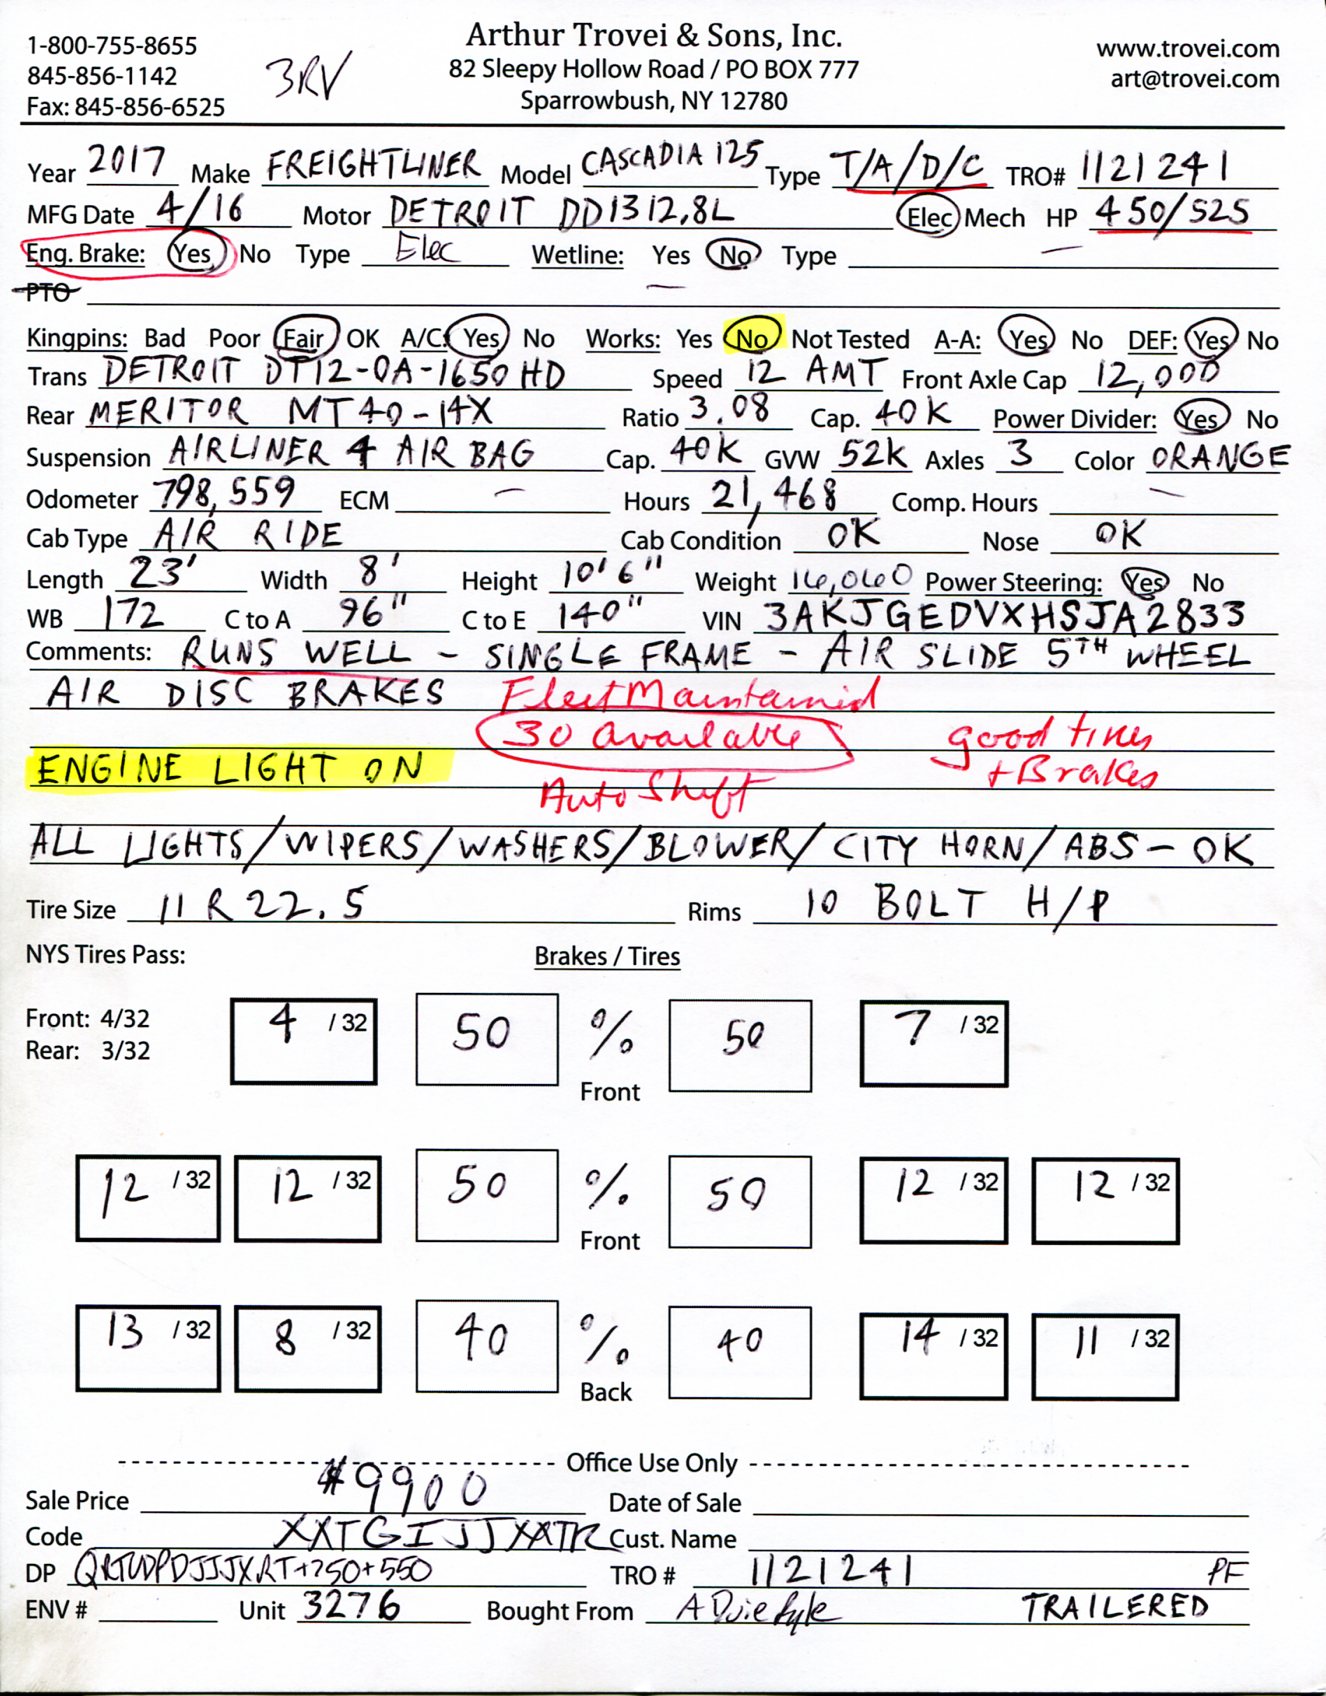 Arthur Trovei & Sons, Inc.
1-800-755-8655
845-856-1142
Fax: 845-856-6525
3RV
82 Sleepy Hollow Road / PO BOX 777
Sparrowbush, NY 12780
www.trovei.com
art@trovei.com
Year 2017 Make FREIGHTLINER Model CASCADIA 125 Type T/A/D/C TRO# 1121241
MFG Date 4/16 Motor DETROIT DD13 12.8L Elec Mech HP 450/525
Eng. Brake: Yes No Type Elec Wetline: Yes No Type —
PTO —
Kingpins: Bad Poor Fair OK A/C: Yes No Works: Yes No Not Tested A-A: Yes No DEF: Yes No
Trans DETROIT DT12-OA-1650HD Speed 12 AMT Front Axle Cap 12,000
Rear MERITOR MT40-14X Ratio 3.08 Cap. 40K Power Divider: Yes No
Suspension AIRLINER 4 AIR BAG Cap. 40K GVW 52K Axles 3 Color ORANGE
Odometer 798,559 ECM — Hours 21,468 Comp. Hours —
Cab Type AIR RIDE Cab Condition OK Nose OK
Length 23' Width 8' Height 10'6" Weight 16,060 Power Steering: Yes No
WB 172 C to A 96" C to E 140" VIN 3AKJGEDVXHSJA2833
Comments: RUNS WELL - SINGLE FRAME - AIR SLIDE 5TH WHEEL
AIR DISC BRAKES Fleet Maintained
30 available good tires
ENGINE LIGHT ON + Brakes
Auto Shift
ALL LIGHTS/WIPERS/WASHERS/BLOWER/CITY HORN/ABS - OK
Tire Size 11 R 22.5 Rims 10 BOLT H/P
NYS Tires Pass: Brakes / Tires
Front: 4/32
Rear: 3/32
4 /32 50 % 50 7 /32
Front
12 /32 12 /32 50 % 50 12 /32 12 /32
Front
13 /32 8 /32 40 % 40 14 /32 11 /32
Back
Office Use Only
Sale Price $9900 Date of Sale
Code Cust. Name
DP TRO # 1121241 PF
ENV # Unit 3276 Bought From TRAILERED